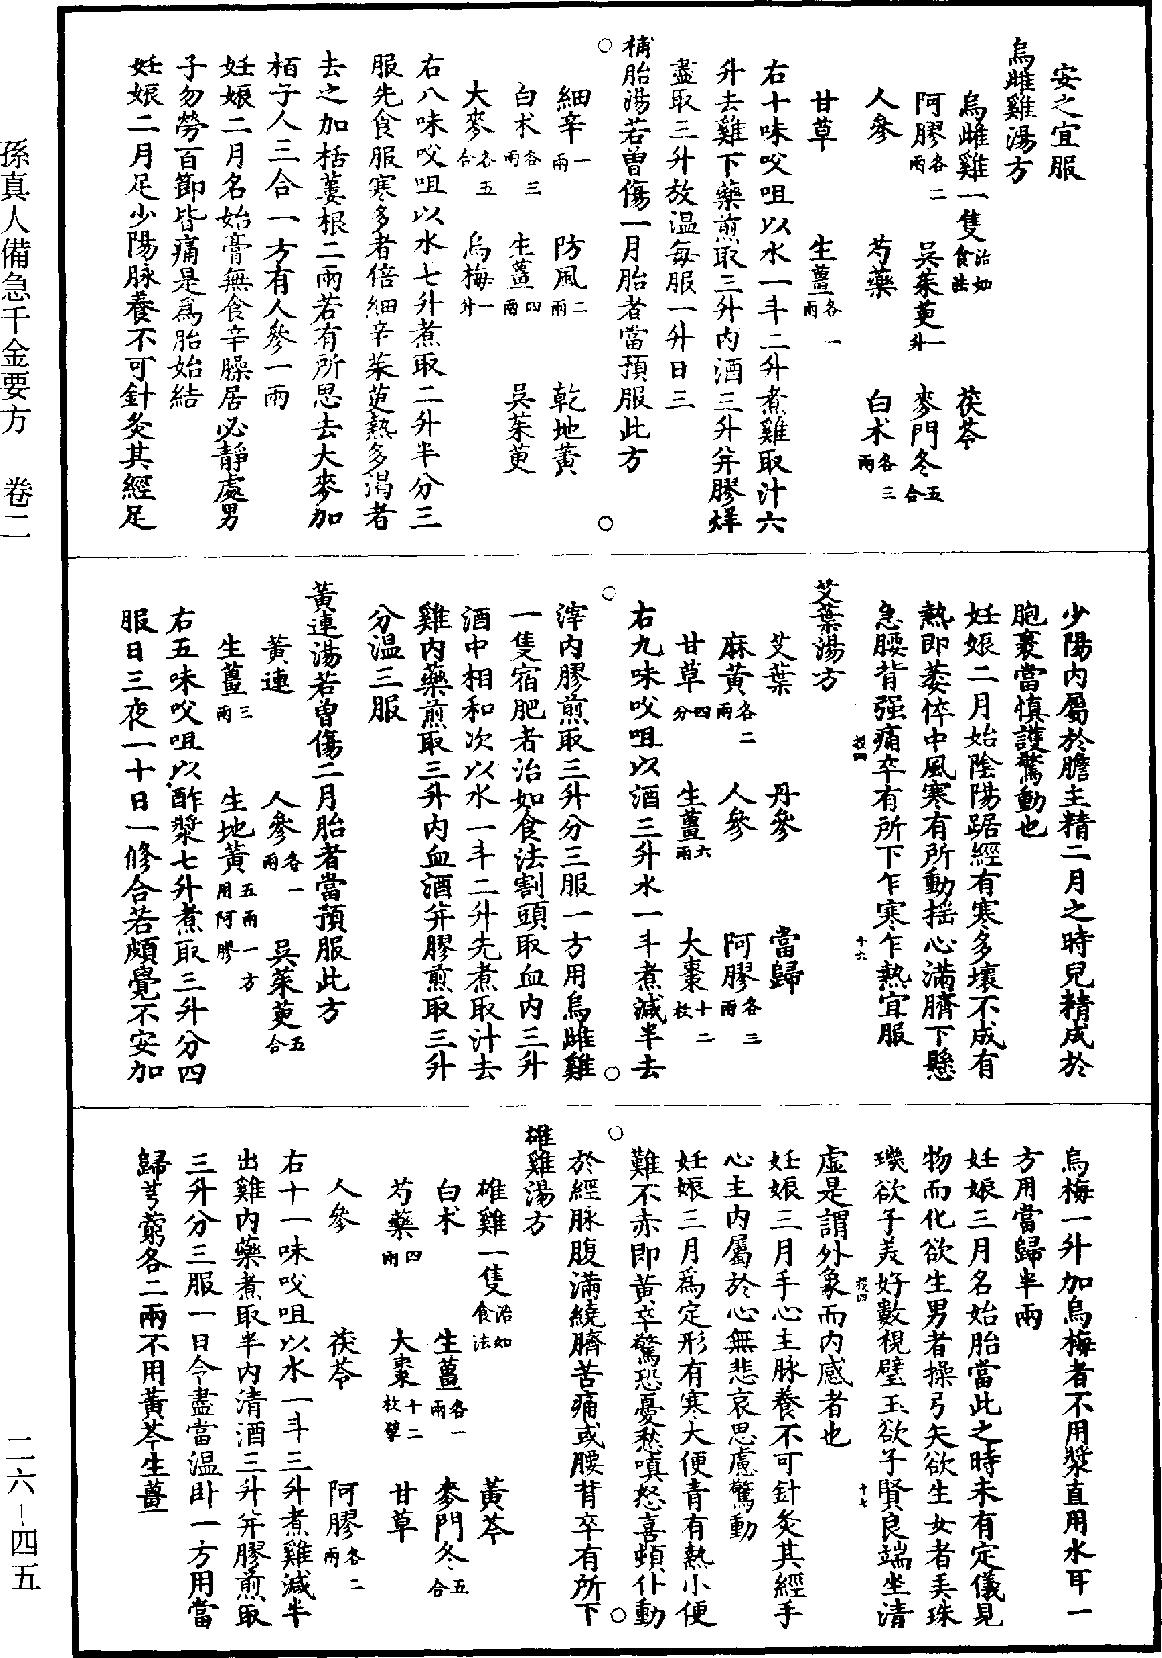 安之宜服
烏雌雞湯方
烏雌雞一隻治如食法 茯苓
阿膠各二兩 吳茱萸一升 麥門冬五合
人參 芍藥 白朮各三兩
甘草 生薑各一兩
右十味㕮咀以水一斗二升煮雞取汁六
升去雞下藥煎取三升內酒三升并膠烊
盡取三升放温每服一升日三
補胎湯若曾傷一月胎者當預服此方
細辛一兩 防風二兩 乾地黃
白朮各三兩 生薑四兩 吳茱萸
大麥各五合 烏梅一升
右八味㕮咀以水七升煮取二升半分三
服先食服寒多者倍細辛茱萸熱多渴者
去之加栝蔞根二兩若有所思去大麥加
栢子人三合一方有人參一兩
妊娠二月名始膏無食辛臊居必靜處男
子勿勞百節皆痛是爲胎始結
妊娠二月足少陽脉養不可針灸其經足
少陽內屬於膽主精二月之時兒精成於
胞裹當慎護驚動也
妊娠二月始陰陽踞經有寒多壞不成有
熱即萎悴中風寒有所動搖心滿臍下懸
急腰背强痛卒有所下乍寒乍熱宜服
艾葉湯方
艾葉 丹參 當歸
麻黃各二兩 人參 阿膠各三兩
甘草四分 生薑六兩 大棗十二枚
右九味㕮咀以酒三升水一斗煮減半去
滓內膠煎取三升分三服一方用烏雌雞
一隻宿肥者治如食法割頭取血內三升
酒中相和次以水一斗二升先煮取汁去
雞內藥煎取三升內血酒并膠煎取三升
分温三服
黃連湯若曾傷二月胎者當預服此方
黃連 人參各一兩 吳茱萸五合
生薑三兩 生地黃五兩一方用阿膠
右五味㕮咀以酢漿七升煮取三升分四
服日三夜一十日一修合若頗覺不安加
烏梅一升加烏梅者不用漿直用水耳一
方用當歸半兩
妊娠三月名始胎當此之時未有定儀見
物而化欲生男者操弓矢欲生女者弄珠
璣欲子美好數視璧玉欲子賢良端坐清
虚是謂外象而內感者也
妊娠三月手心主脉養不可針灸其經手
心主內屬於心無悲哀思慮驚動
妊娠三月爲定形有寒大便青有熱小便
難不赤即黃卒驚恐憂愁嗔怒喜頓仆動
於經脉腹滿繞臍苦痛或腰背卒有所下
雄雞湯方
雄雞一隻治如食法 黃芩
白朮 生薑各一兩 麥門冬五合
芍藥四兩 大棗十二枚擘 甘草
人參 茯苓 阿膠各二兩
右十一味㕮咀以水一斗三升煮雞減半
出雞內藥煮取半內清酒三升并膠煎取
三升分三服一日令盡當温卧一方用當
歸芎藭各二兩不用黃芩生薑
孫真人備急千金要方 卷二
二六－四五